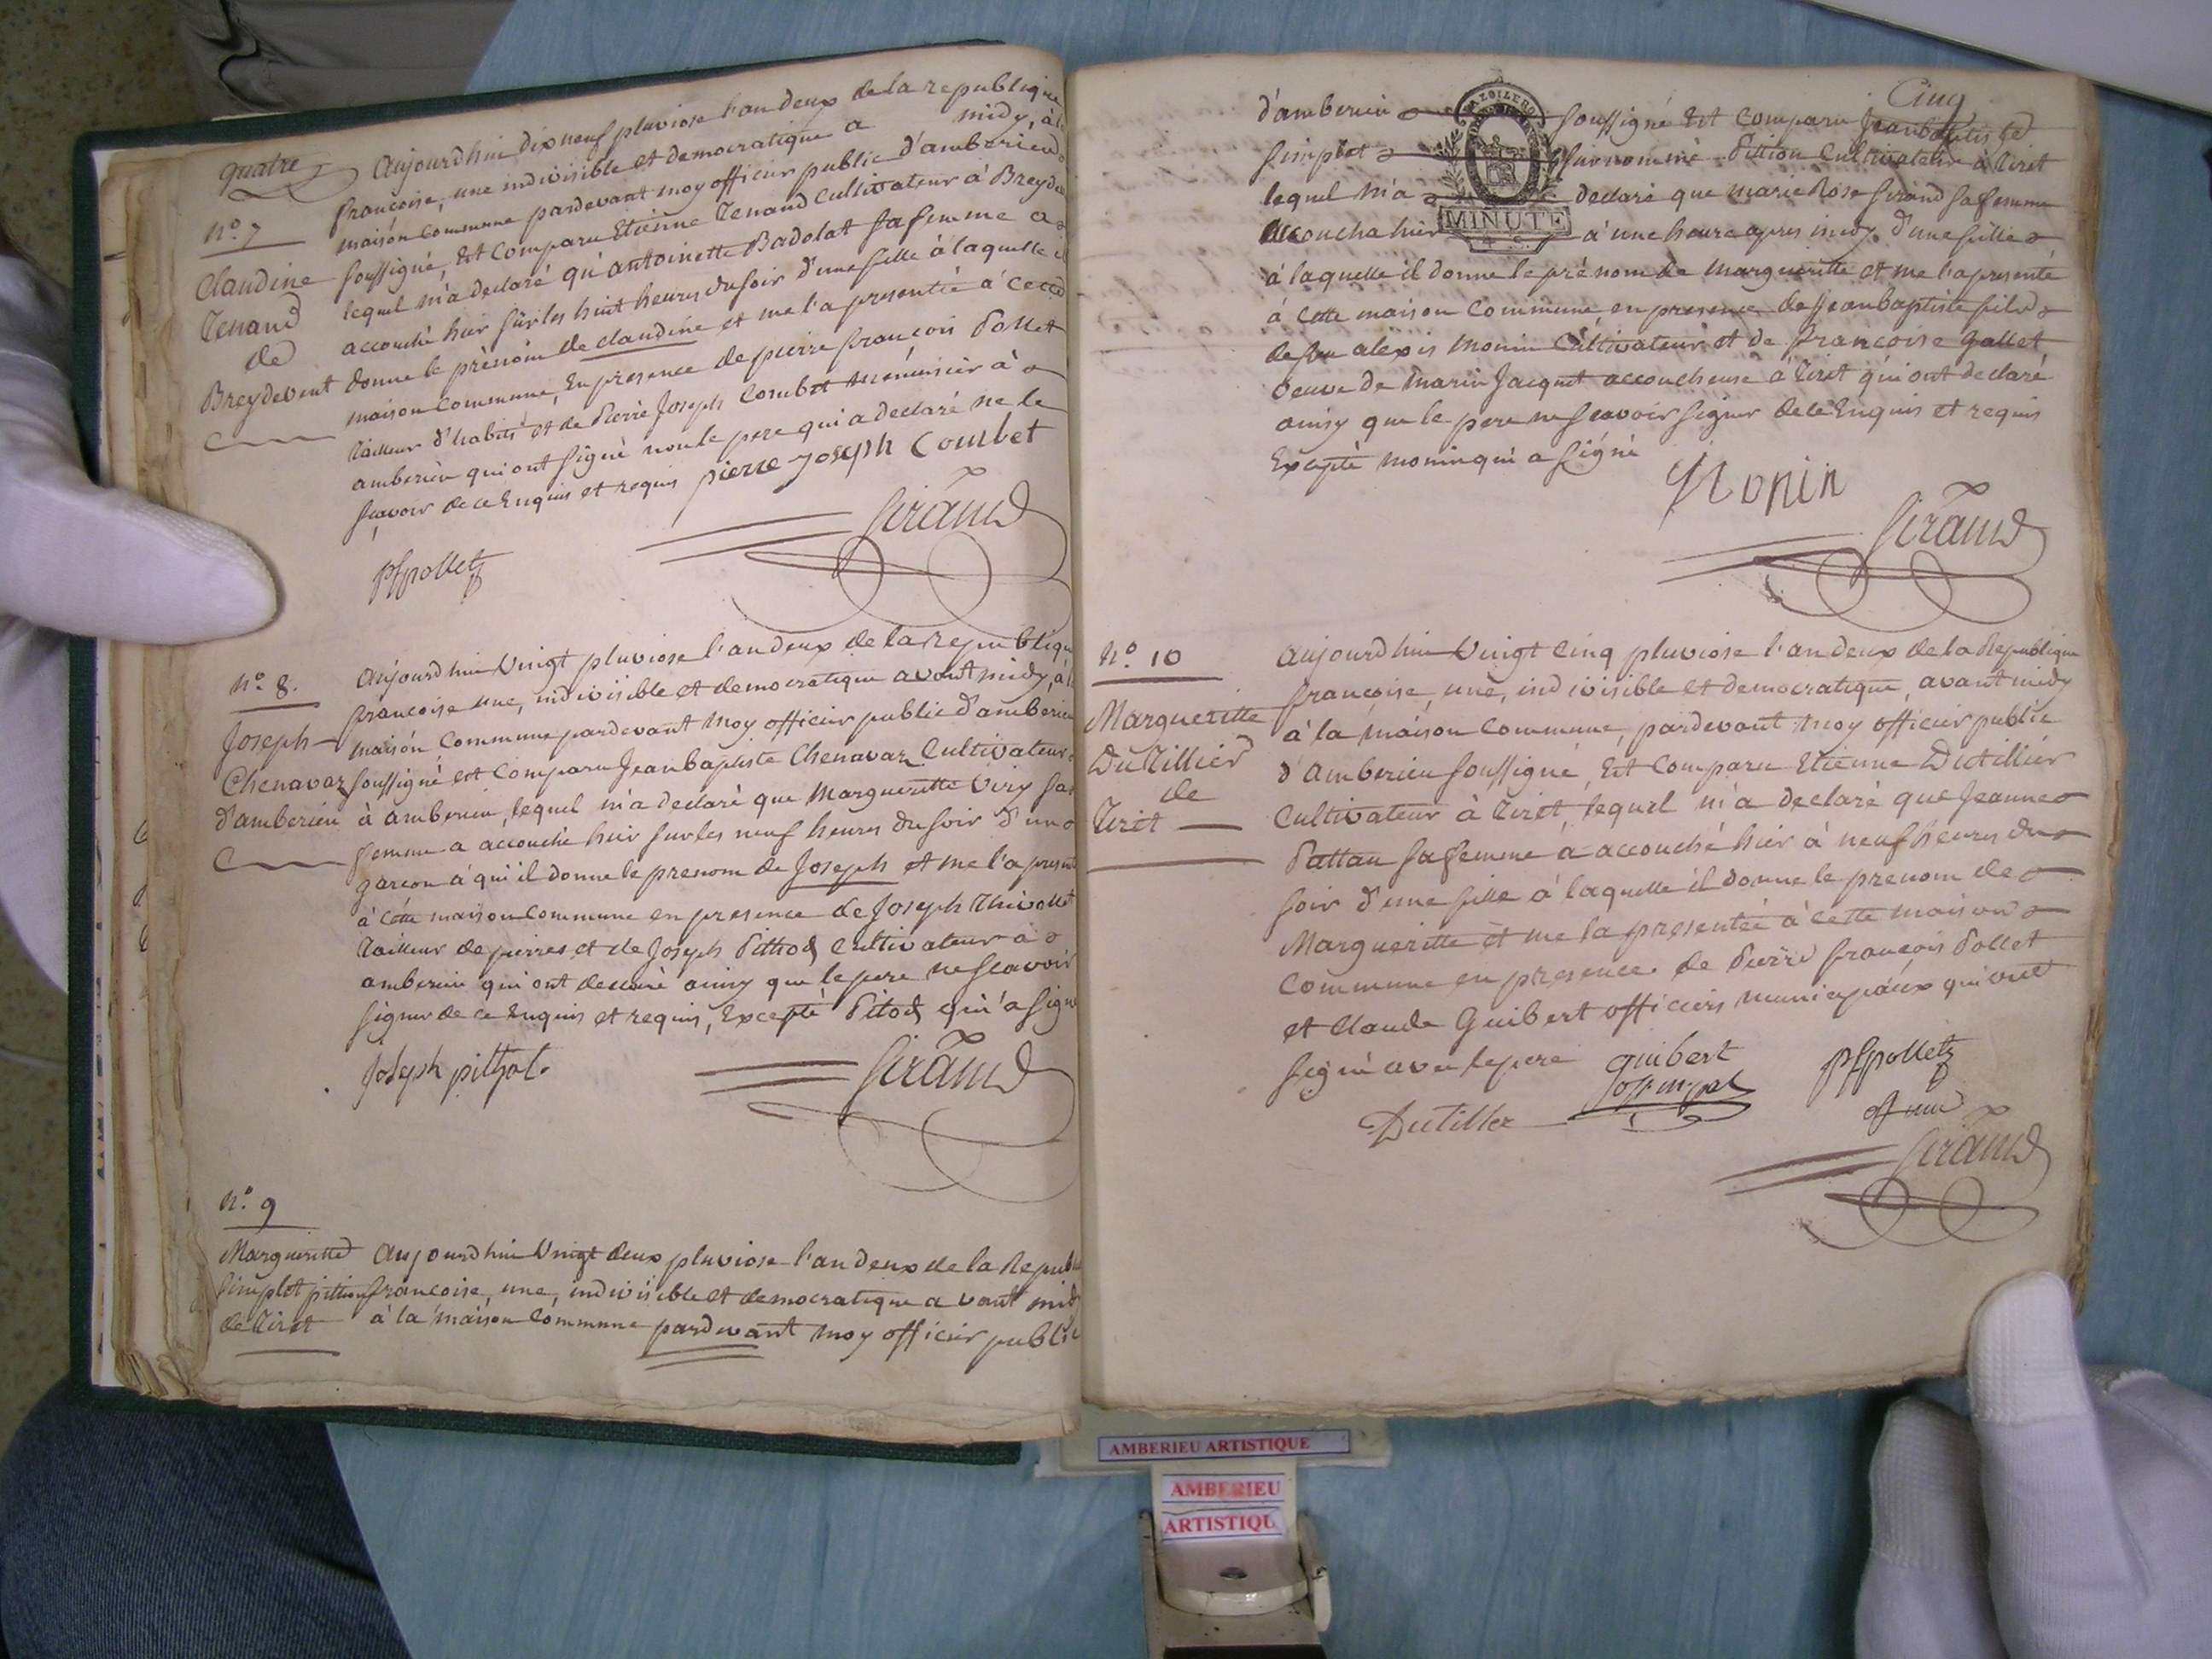 quatre
N.° 7
Claudine
Tenand
de
Breydevent
Aujourdhui dix neuf pluviose l'an deux de la republique
francoise, une indivisible et democratique a midy, à la
maison commune pardevant moy officier public d'amberieu
soussigné, Est comparu Etienne Tenand cultivateur à Breydev
lequel m'a declaré qu'antoinette Badolat sa femme a
accouché hier sur les huit heures du soir d'une fille à laquelle il
donne le prènom de claudine et me l'a presentée à cette
maison commune, En presence de pierre françois Pollet
tailleur d'habits et de Pierre Joseph Combet menuisier à
amberieu qui ont signé non le pere qui a declaré ne le
sçavoir de ce Enquis et requis pierre joseph Combet
Girand
pfpollet
N.° 8.
Joseph
Chenavaz
d'amberieu
Aujourdhui Vingt pluviose l'an deux de la republique
francoise une, indivisible et democratique avant midy, à la
maison commune pardevant moy officier public d'amberieu
soussigné est comparu Jean baptiste Chenavaz Cultivateur
à amberieu, lequel m'a declaré que Margueritte Viry sa
femme a accouché hier sur les neuf heures du soir d'un
garcon à qui il donne le prenom de Joseph et me l'a present
à cette maison commune en presence de Joseph Thivollet
tailleur de pierres et de Joseph Pithod Cultivateur à
amberieu qui ont declaré ainsy que le pere ne scavoir
signer de ce Enquis et requis, Excepté Pitod qui a signé
Joseph pithot.
Girand
N.° 9
Margueritte
Simplet pittion
de Tiret
Aujourdhui Vingt deux pluviose l'an deux de la Republi
francoise, une, indivisible et democratique avant midy
à la maison commune pardevant moy officier public
Cinq
d'amberieu soussigné Est comparu Jean baptiste
Simplet surnommé Pittion Cultivateur à Tiret
lequel m'a declaré que marie Rose Girand sa femme
MINUTE
accoucha hier à une heure apres midy d'une fille
à laquelle il donne le prénom de Margueritte et me l'a presenté
à cette maison commune en presence de Jean baptiste fils
de feu alexis Monin Cultivateur et de francoise gallet
veuve de Marin Jacquet accoucheuse à Tiret qui ont declaré
ainsy que le pere ne scavoir signer de ce Enquis et requis
Excepté monin qui a signé
Monin
Girand
N.° 10
Margueritte
DuTillier
de
Tiret
Aujourdhui Vingt cinq pluviose l'an deux de la Republique
françoise, une, indivisible et democratique, avant midy
à la maison commune, pardevant moy officier public
d'amberieu soussigné, Est comparu Etienne Dutillier
Cultivateur à Tiret, lequel m'a declaré que Jeanne
Pattau sa femme a accouché hier à neuf heures du
soir d'une fille à laquelle il donne le prenom de
Margueritte et me la presentée à cette maison
commune en presence de Pierre françois Pollet
et Claude Guibert officiers municipaux qui ont
signé avec le pere
guibert
off. m.pal
pfpollet
off mu
Dutiller
Girand
AMBERIEU ARTISTIQUE
AMBERIEU
ARTISTIQU